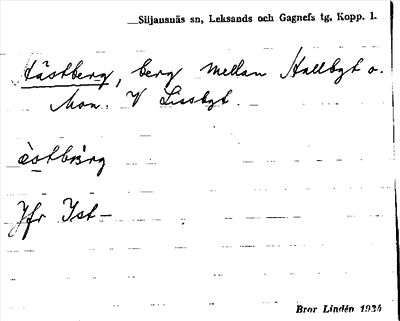 Siljansnäs sn, Leksands och Gagnefs tg, Kopp. l.
Hästberg, berg mellan Hallbyt o.
Mon. V Lissbyt.
Jfr Ist-
Bror Lindén 1934